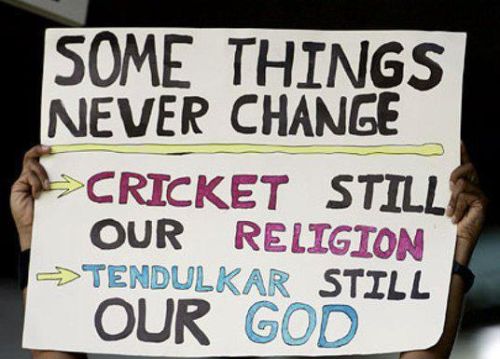 SOME THINGS
NEVER CHANGE
CRICKET STILL
OUR RELIGION
TENDULKAR STILL
OUR GOD